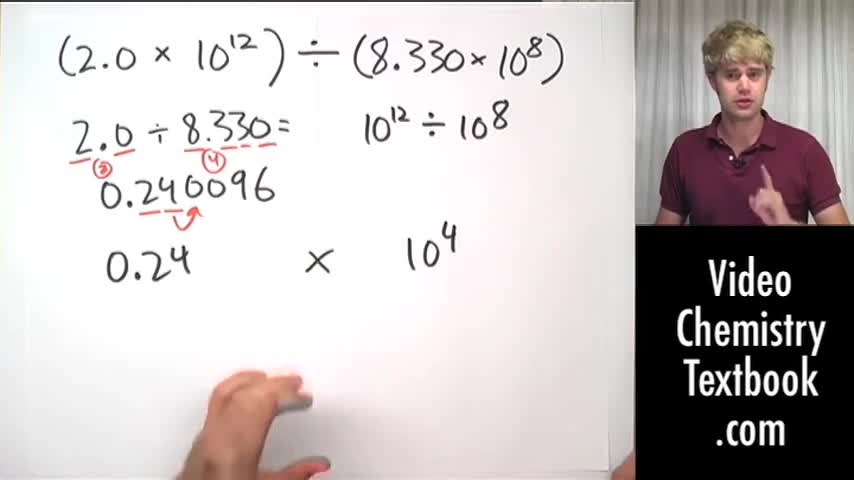 (2.0 × 10¹²) ÷ (8.330 × 10⁸)
2.0 ÷ 8.330 = 10¹² ÷ 10⁸
2 4
0.240096
0.24 × 10⁴
Video
Chemistry
Textbook
.com